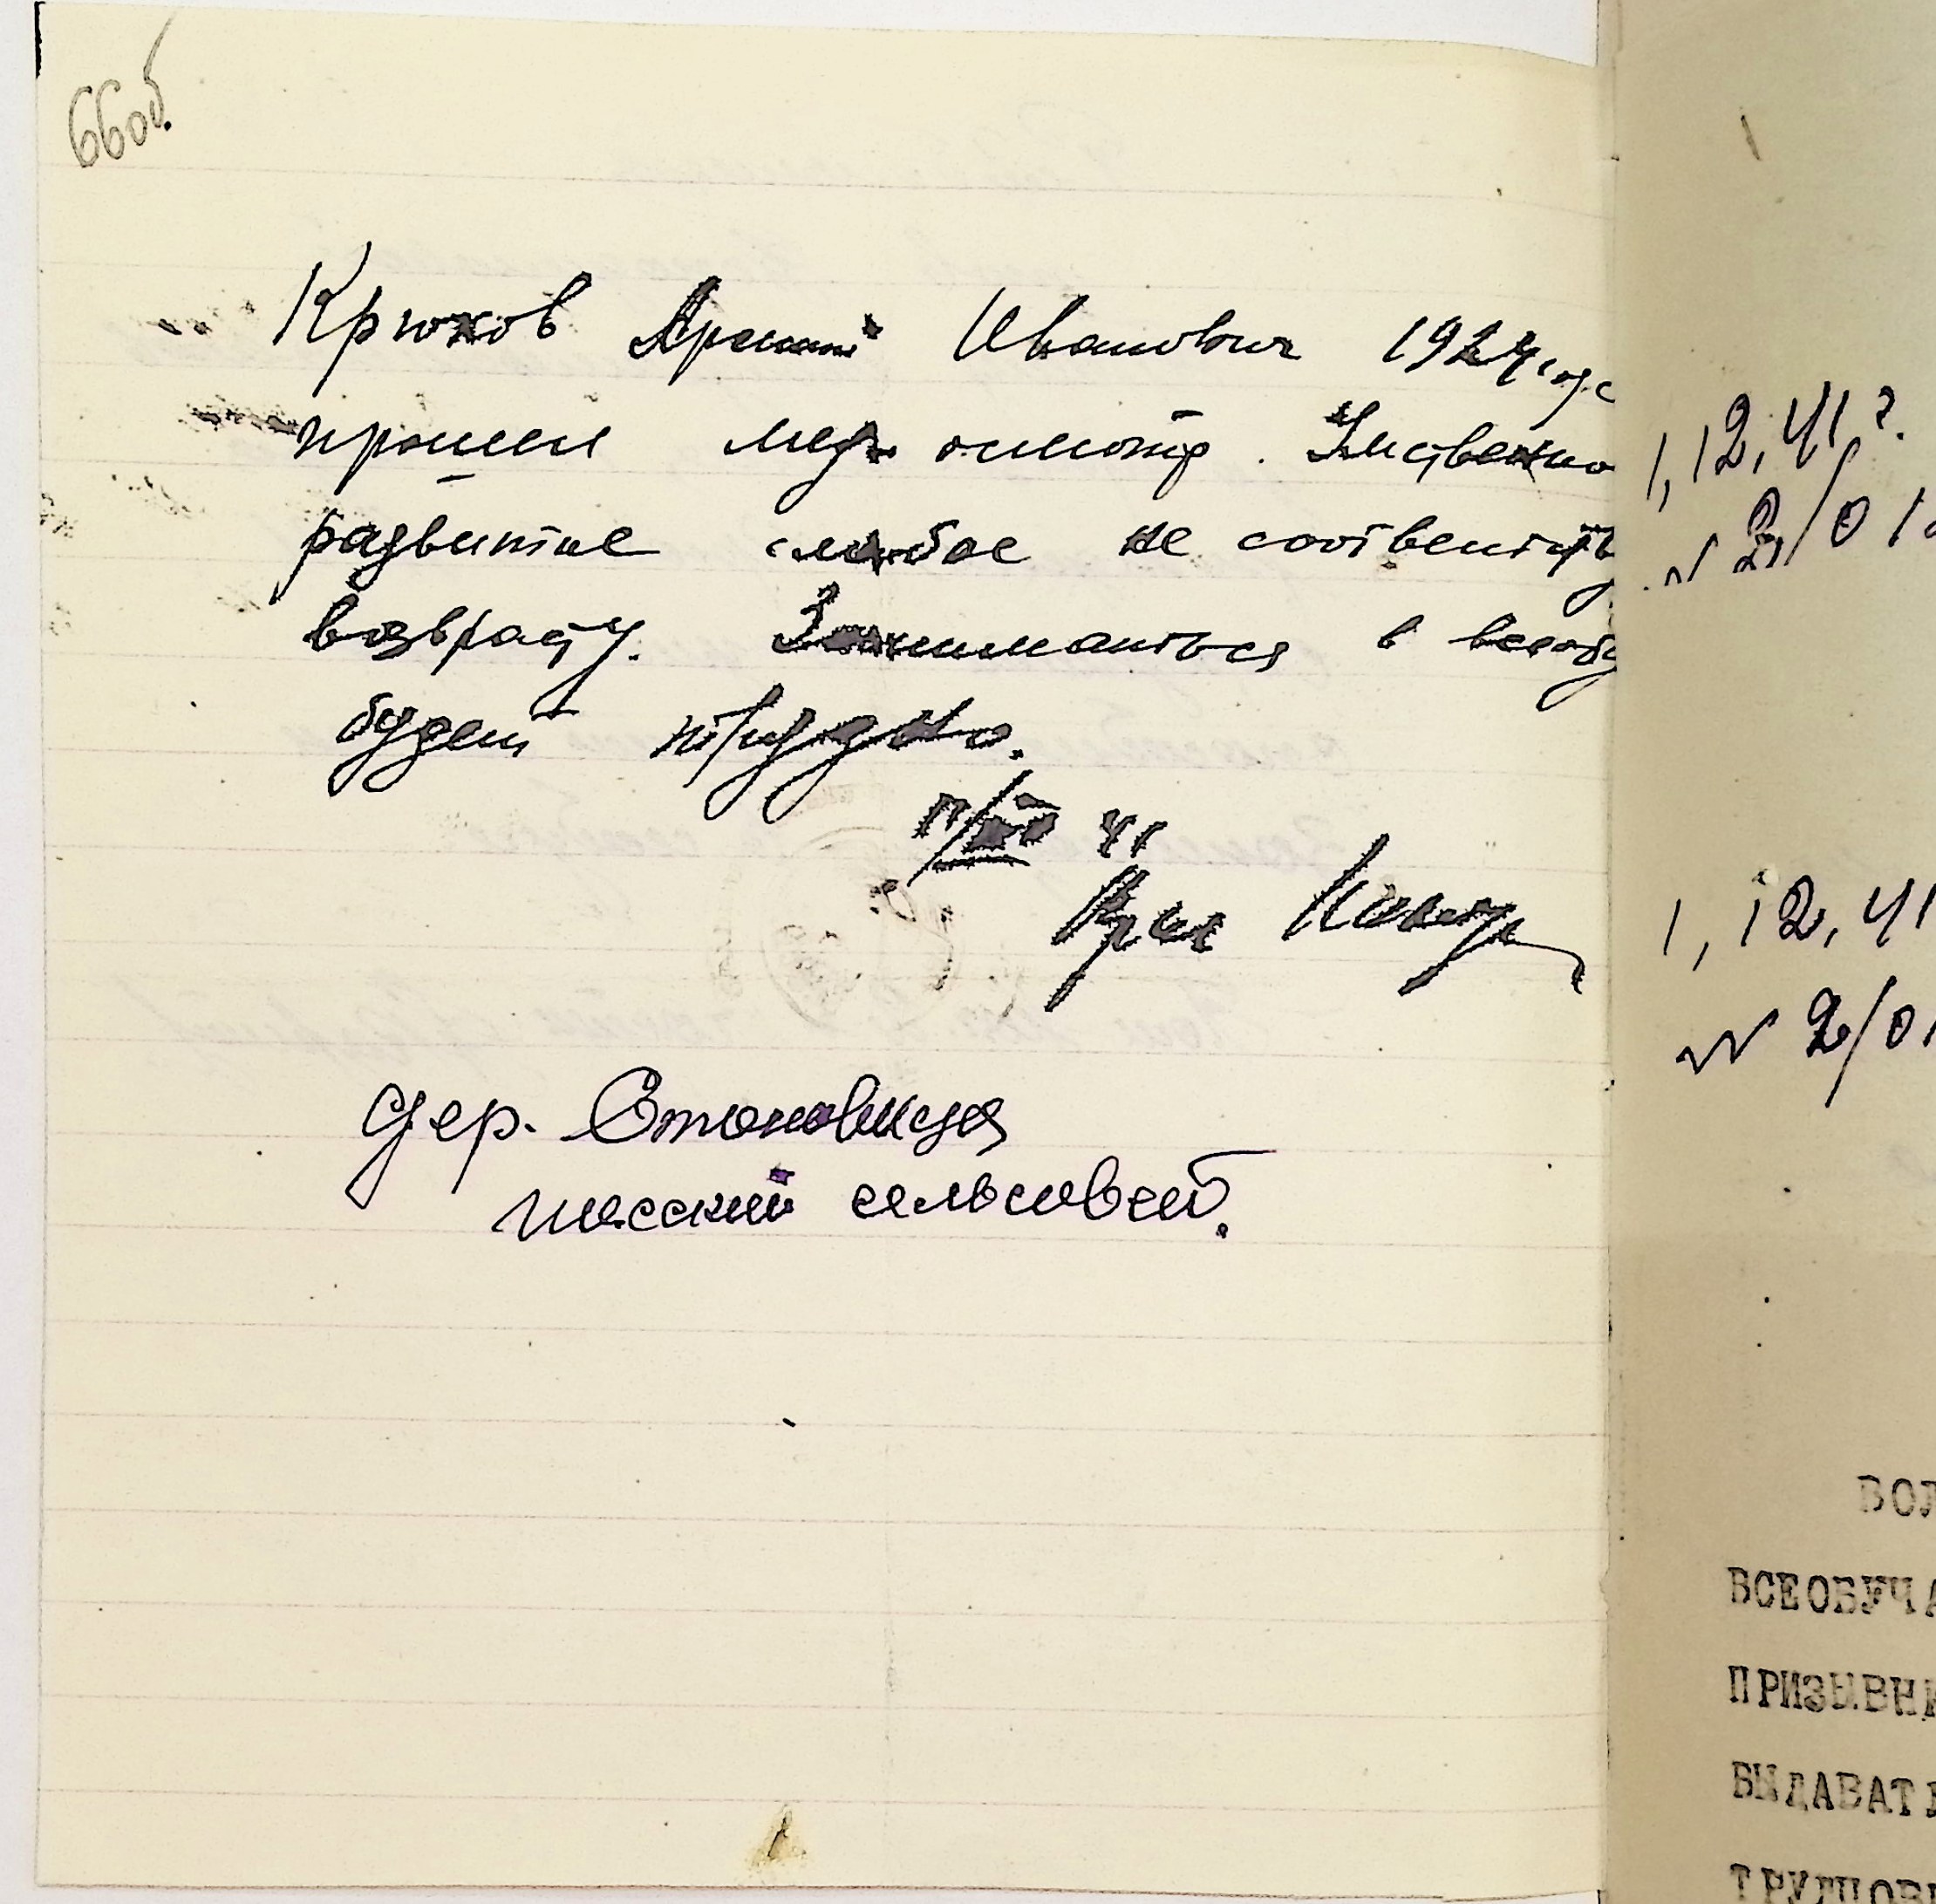 66об.
Крюков Иванович 1924 года
прошел мед осмотр. Умственно
развитие слабое не соответству
возврасту. Заниматься в всеобу
будет трудно.
41
Врач
дер. Становища
шасский сельсовет.
1, 12, 41 г.
№ 2/01
1, 12, 41
№ 2/01
ВОЛ
ВСЕОБУЧА
ПРИЗЫВНИ
ВЫДАВАТЬ